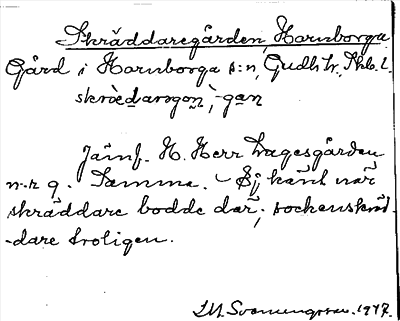 Skräddaregården, Hornborga
Gård i Hornborga s:n, Gudh. hr, Skb. l.
skrædarogoṇ, -gan
Jämf. H. Herr Lagesgården
n:r 9. Samma. – Ej känt när
skräddare bodde där; sockenskräd-
-dare troligen.
1947.